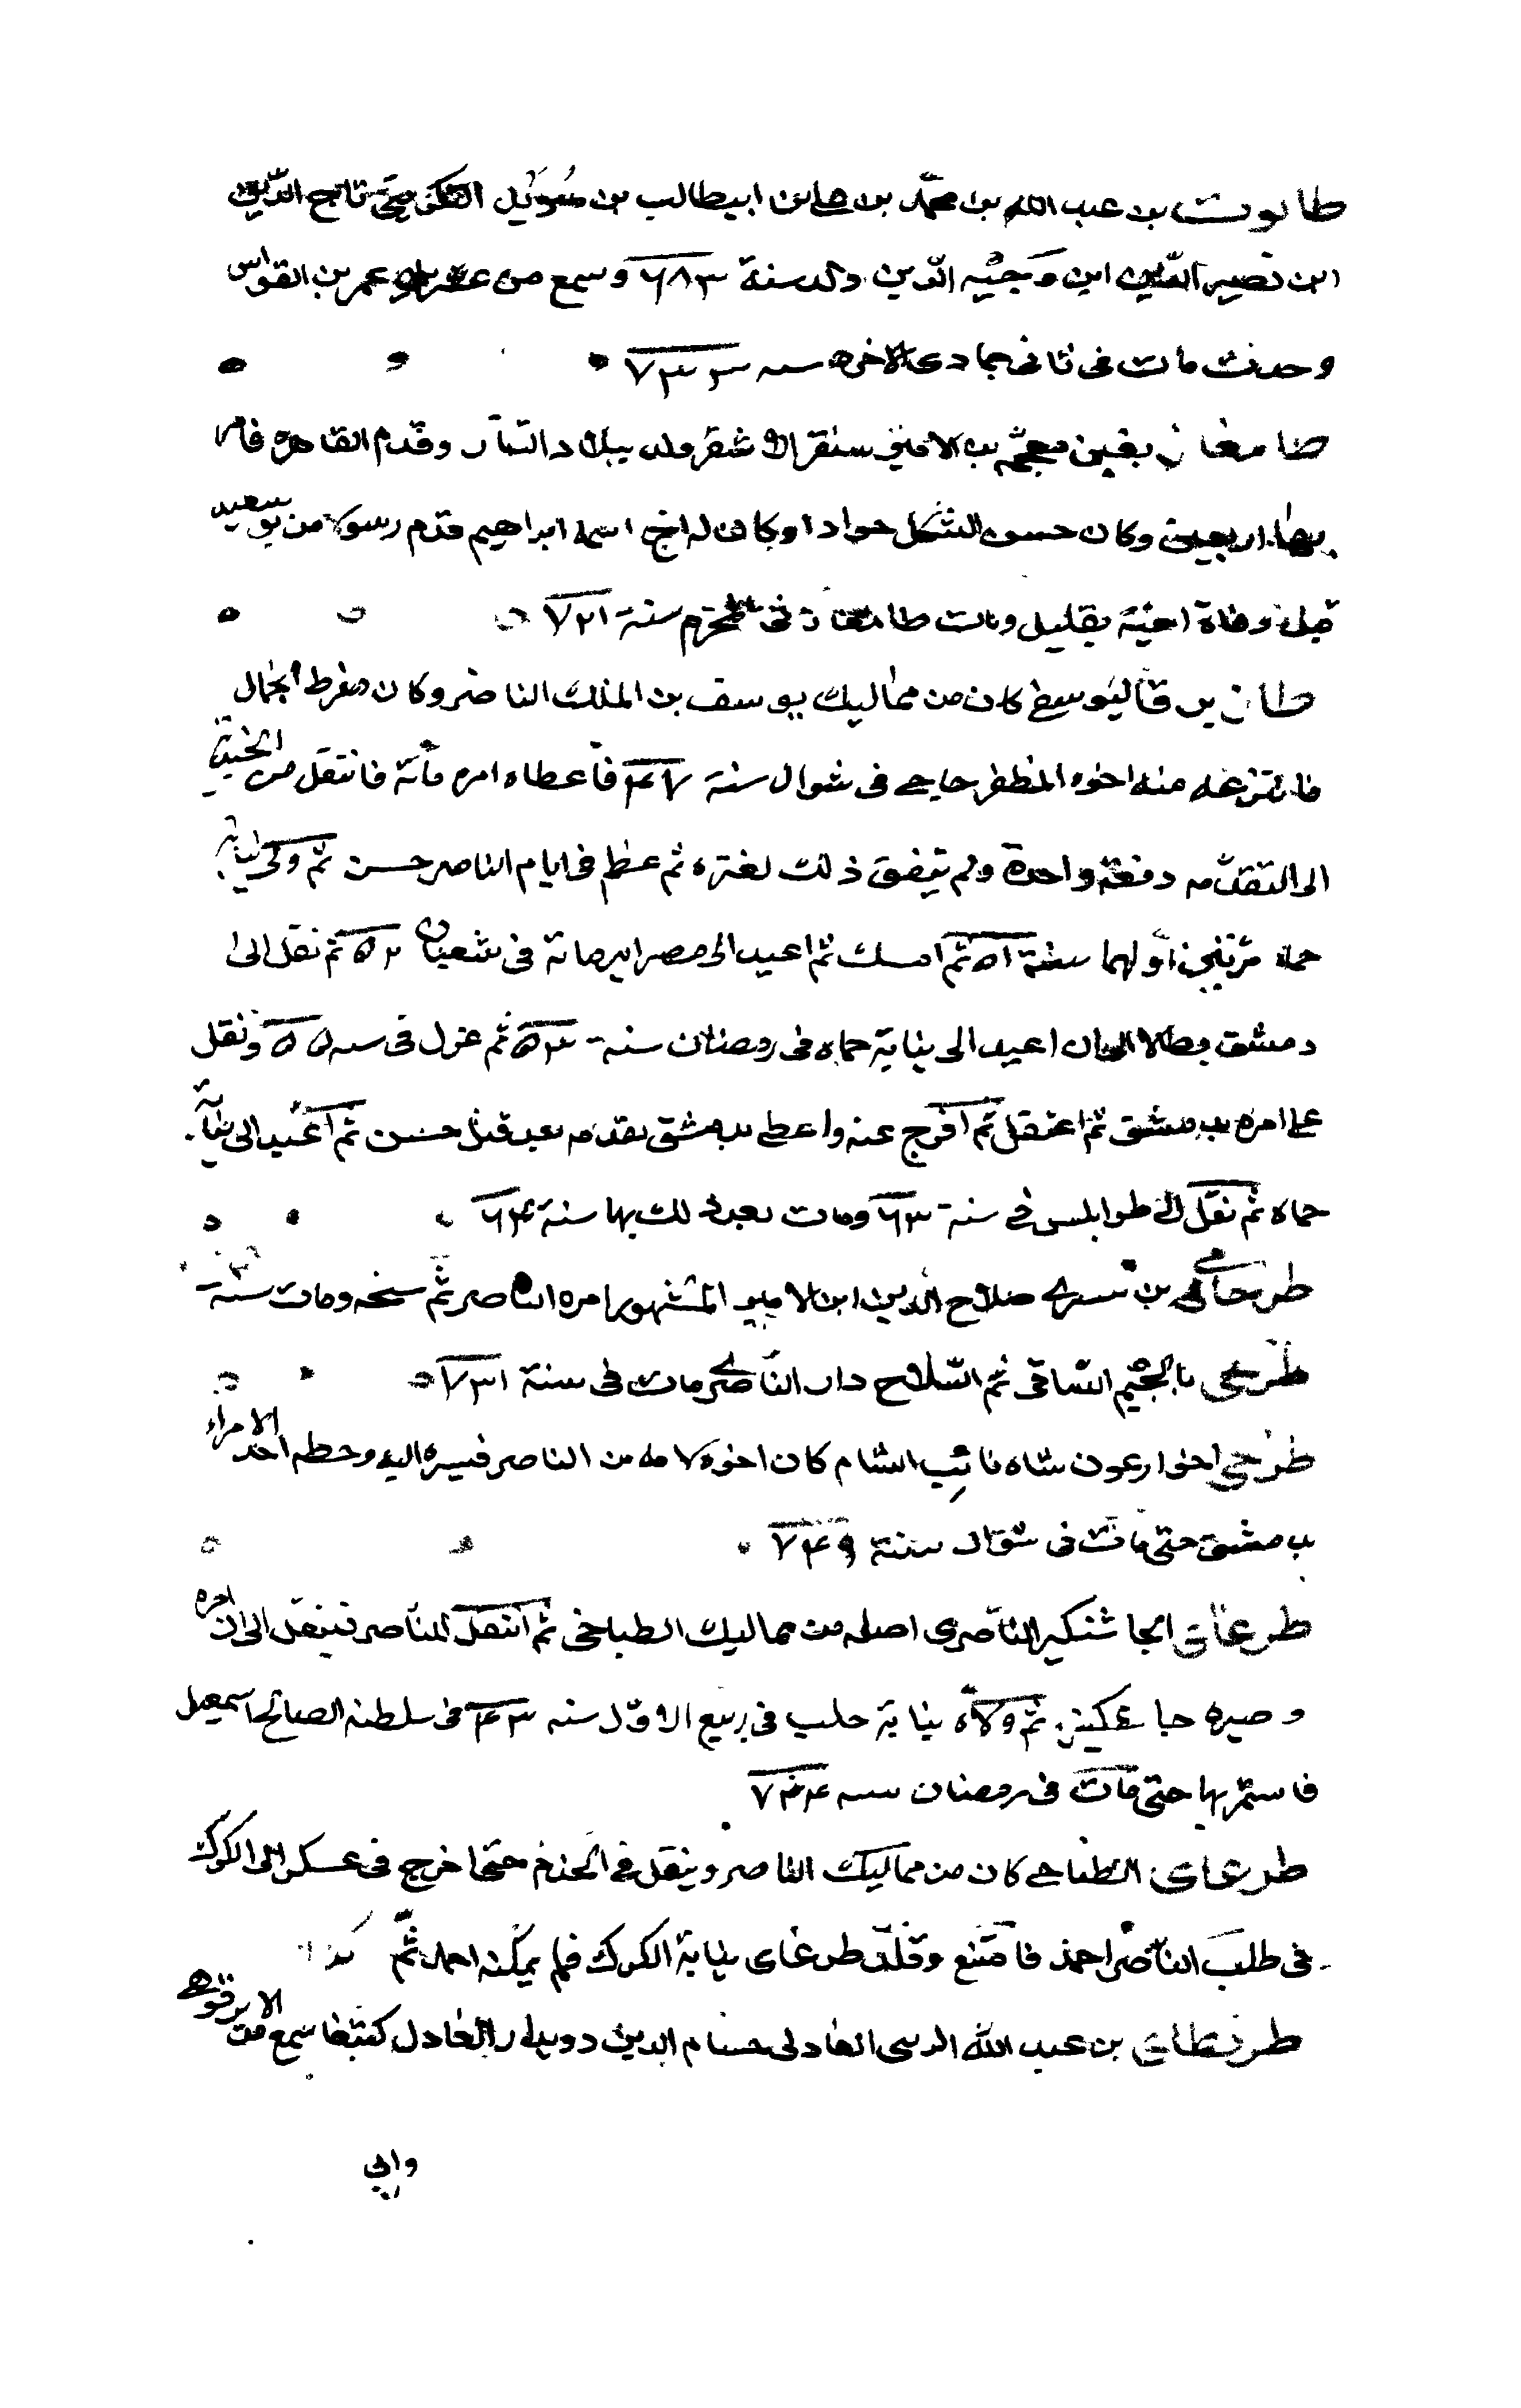 طالوت بن عبد الله بن محمد بن علي بن ابيطالب بن سويد التكريتي تاج الدين
ابن نصير الدين ابن وجيه الدين ولد سنة ٦٨٣ وسمع من عمر بن القواس
وحدث مات في ثاني جمادى الاخره سنه ٧٣٣
بغين معجمه بن الامير سنقر الاشقر ولد ببلاد التتار وقدم القاهره فامر
بها اربعين وكان حسن الشكل جوادا وكان له اخ اسمه ابراهيم قدم رسولا من بوسعيد
قبل وفاة اخيه بقليل ومات في المحرم سنة ٧٢١
طاز يرق اليوسفي كان من مماليك يوسف بن الملك الناصر وكان مفرط الجمال
فانتزعه منه اخوه المظفر حاجي في شوال سنة ٤٧ فاعطاه امره مائة فانتقل من الجنديه
الى التقدمه دفعة واحدة ولم يتفق ذلك لغيره ثم عظم في ايام الناصر حسن ثم ولي نيابة
حماة مرتين اولهما سنة ٥١ ثم امسك ثم اعيد الى مصر امير مائة في شعبان ٥٢ ثم نقل الى
دمشق بطالا الى ان اعيد الى نيابة حماه في رمضان سنة ٥٣ ثم عزل في سنه ٥٥ ونقل
على امره بدمشق ثم اعتقل ثم افرج عنه واعطي بدمشق تقدمه بعد قتل حسن ثم اعيد الى نيابة
حماه ثم نقل الى طرابلس في سنة ٦٣ ومات بعد ذلك بها سنة ٦٤
بن صلاح الدين ابن الامير المشهور امره الناصر ثم سجنه ومات سنة
طرجي بالجيم الساقي ثم السلاح دار الناصري مات في سنة ٧٣١
طرجي اخو ارغون شاه نائب الشام كان اخوه من الناصر فسيره اليه وجعله احد الامراء
بدمشق حتى مات في شوال سنة ٧٤٩
طرغاي الجاشنكير الناصري اصله من مماليك الطباخي ثم انتقل للناصر فتنقل الى ان امره
وصيره جاشنكير ثم ولاه نيابة حلب في ربيع الاول سنه ٤٣ في سلطنه الصالح اسمعيل
فاستمر بها حتى مات في رمضان سنه ٧٤٤
طرغاي الطباخي كان من مماليك الناصر وينقل في الخدم حتى خرج في عسكر الى الكرك
في طلب الناصر احمد فامتنع وقلد طرغاي نيابة الكرك فلم يمكنه احمد ثم
طرنطاي بن عبد الله العادلي حسام الدين دويدار العادل كتبغا سمع من الابرقوهي
وابي